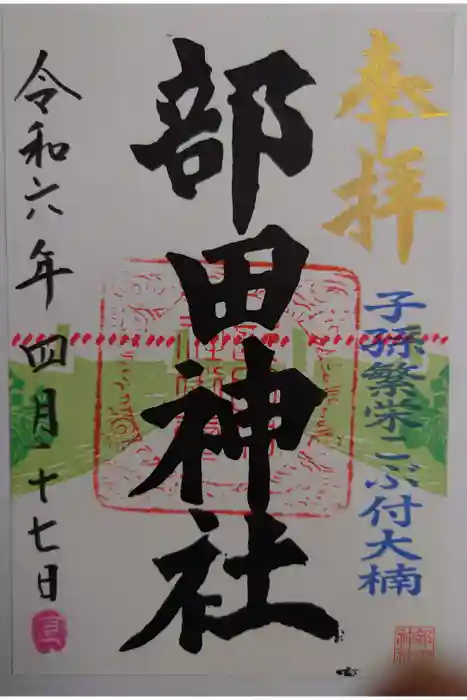 奉拝
子孫繁栄こぶ付大楠
部田神社
令和六年四月二十七日